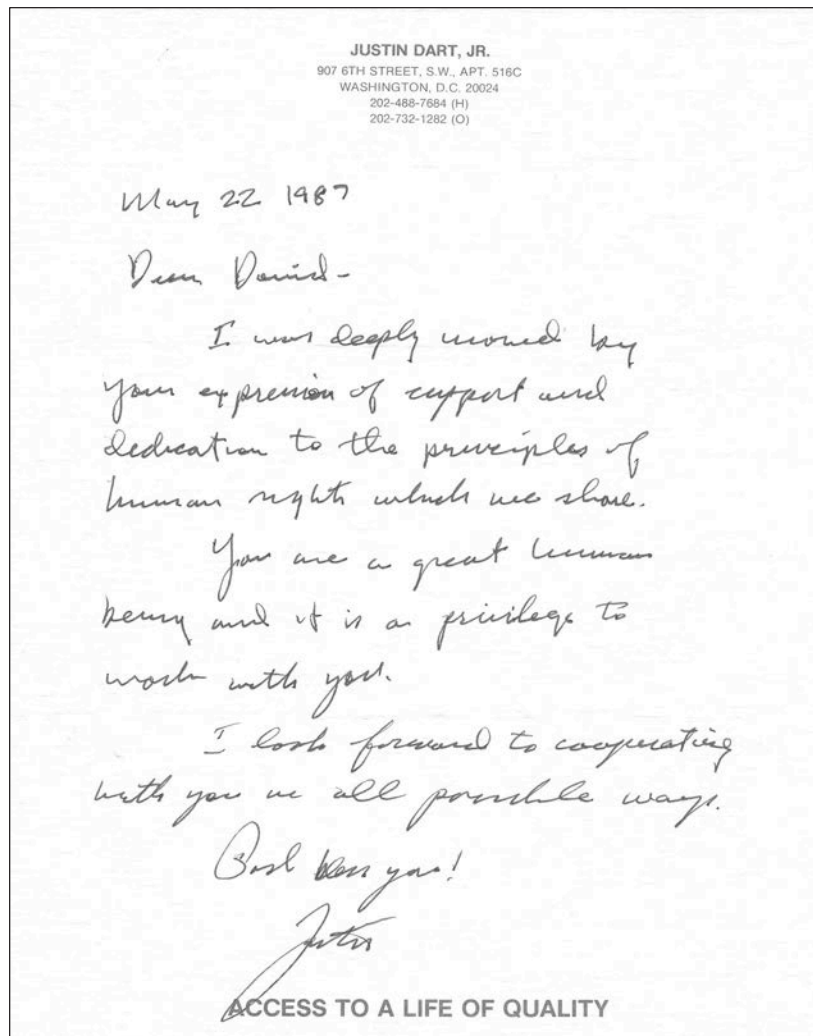 JUSTIN DART, JR.
907 6TH STREET, S.W., APT. 516C
WASHINGTON, D.C. 20024
202-488-7684 (H)
202-732-1282 (O)
May 22 1987
Dear David-
I was deeply moved by
your expression of support and
dedication to the principles of
human rights which we share.
You are a great human
being and it is a privilege to
work with you.
I look forward to cooperating
with you in all possible ways.
God bless you!
Justin
ACCESS TO A LIFE OF QUALITY